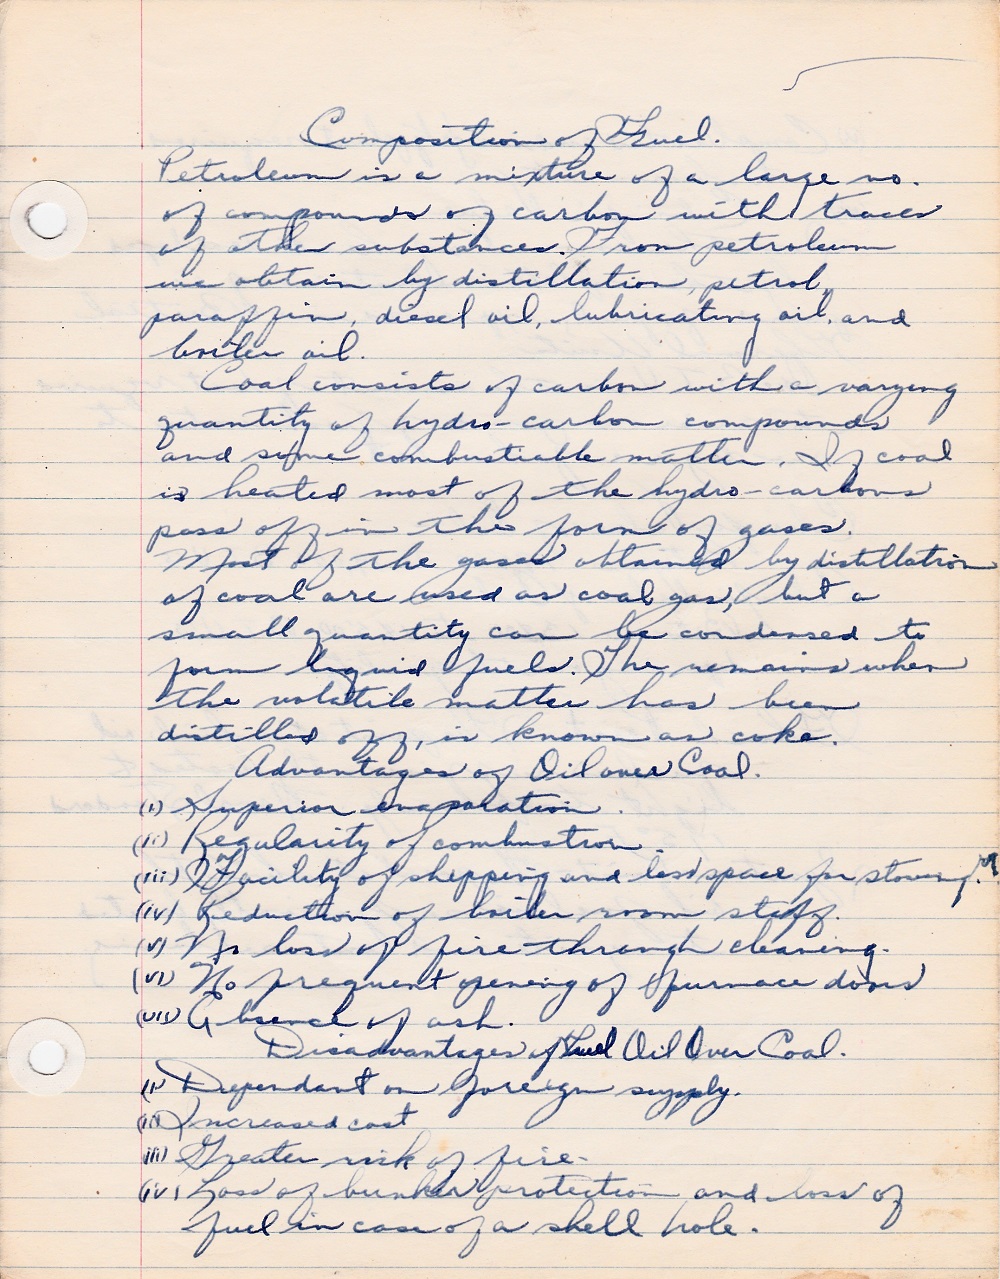 Composition of Fuel.
Petroleum is a mixture of a large no.
of compounds of carbon with traces
of other substances. From petroleum
we obtain by distillation, petrol,
paraffin, diesel oil, lubricating oil, and
boiler oil.
Coal consists of carbon with a varying
quantity of hydro-carbon compounds
and some combustiable matter. If coal
is heated most of the hydro-carbons
pass off in the form of gases.
Most of the gases obtained by distillation
of coal are used as coal gas, but a
small quantity can be condensed to
form liquid fuels. The remains when
the volatile matter has been
distilled off, is known as coke.
Advantages of Oil over Coal.
(i) Superior evaporation.
(ii) Regularity of combustion.
(iii) Facility of shipping and less space for stowing.
(iv) Reduction of boiler room staff.
(v) No loss of fire through cleaning.
(vi) No frequent opening of furnace doors
(vii) Absence of ash.
Disadvantages of Fuel Oil Over Coal.
(i) Dependant on foreign supply.
(ii) Increased cost
(iii) Greater risk of fire.
(iv) Loss of bunker protection and loss of
fuel in case of a shell hole.